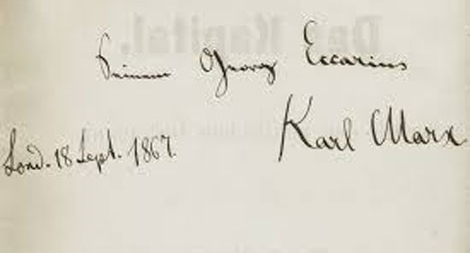 Seinem Georg Eccarius
Karl Marx
Lond. 18 Sept. 1867.